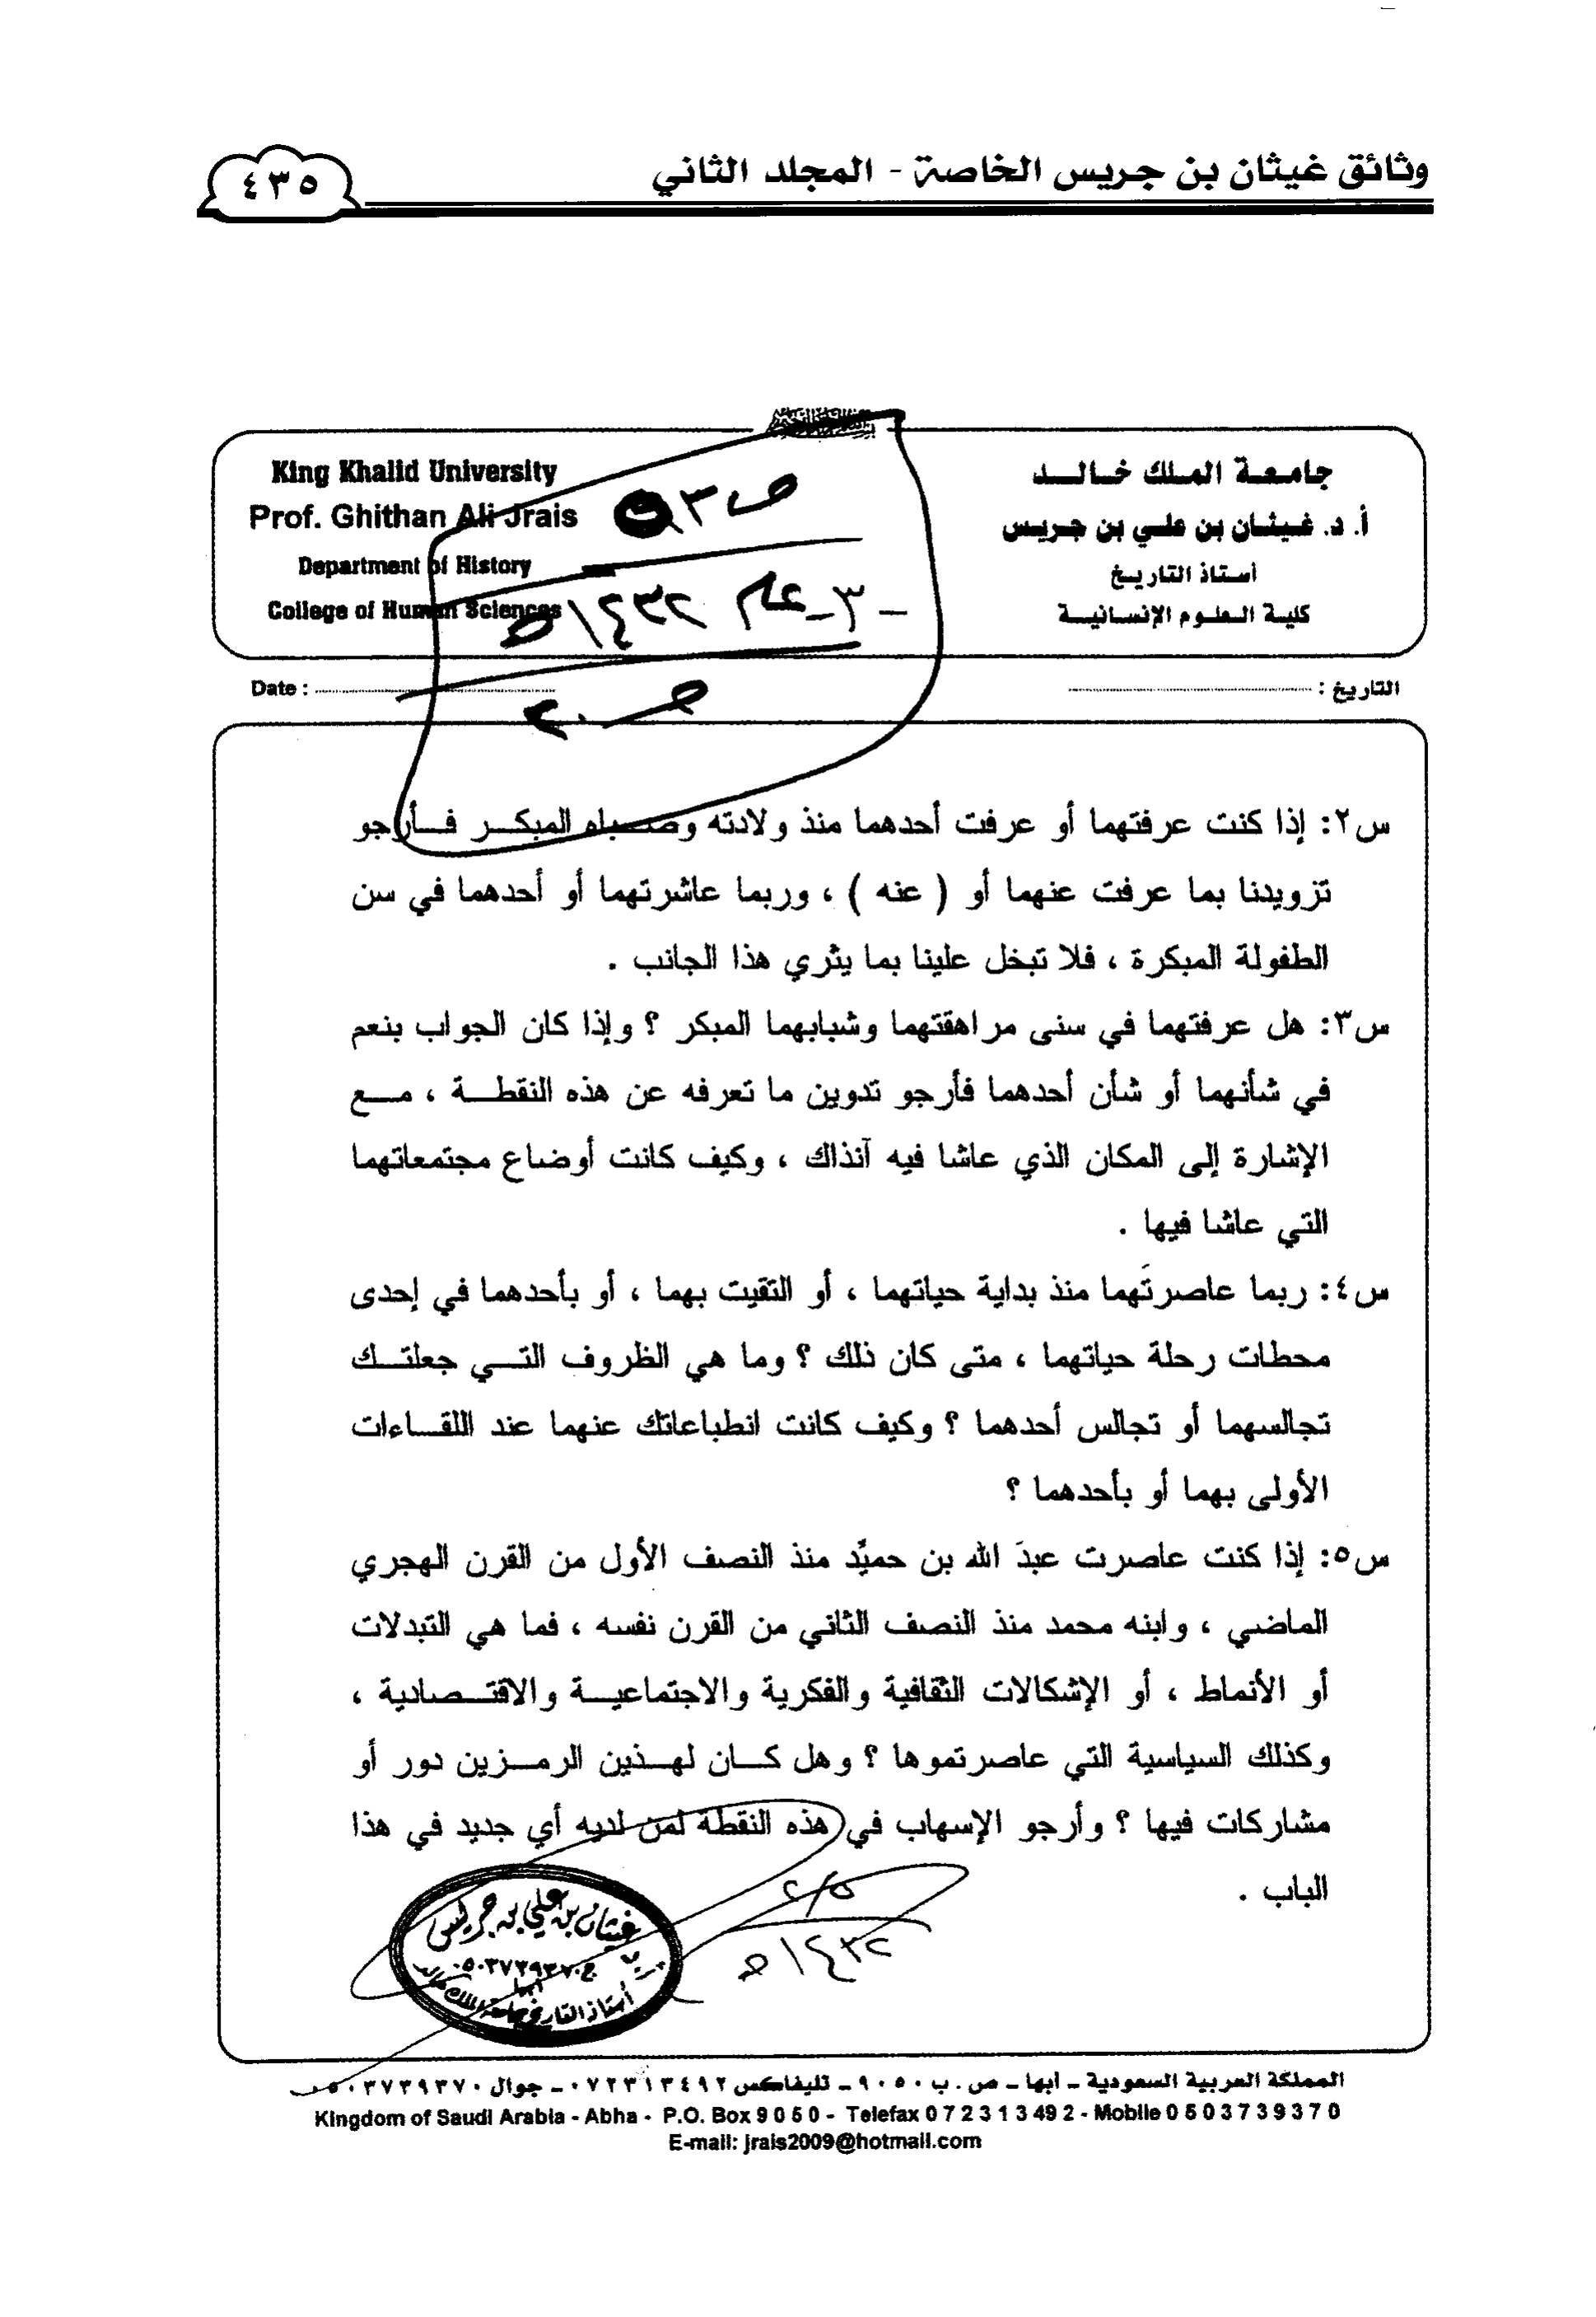 وثائق غيثان بن جريس الخاصة - المجلد الثاني
٤٣٥
جامعة الملك خالد
أ. د. غيثان بن علي بن جريس
أستاذ التاريخ
كلية العلوم الإنسانية
King Khalid University
Prof. Ghithan Ali Jrais
Department of History
College of Human Sciences
التاريخ :
Date :
س٢: إذا كنت عرفتهما أو عرفت أحدهما منذ ولادته وصباه المبكر فأرجو
تزويدنا بما عرفت عنهما أو ( عنه ) ، وربما عاشرتهما أو أحدهما في سن
الطفولة المبكرة ، فلا تبخل علينا بما يثري هذا الجانب .
س٣: هل عرفتهما في سنى مراهقتهما وشبابهما المبكر ؟ وإذا كان الجواب بنعم
في شأنهما أو شأن أحدهما فأرجو تدوين ما تعرفه عن هذه النقطة ، مع
الإشارة إلى المكان الذي عاشا فيه آنذاك ، وكيف كانت أوضاع مجتمعاتهما
التي عاشا فيها .
س٤: ربما عاصرتَهما منذ بداية حياتهما ، أو التقيت بهما ، أو بأحدهما في إحدى
محطات رحلة حياتهما ، متى كان ذلك ؟ وما هي الظروف التي جعلتك
تجالسهما أو تجالس أحدهما ؟ وكيف كانت انطباعاتك عنهما عند اللقاءات
الأولى بهما أو بأحدهما ؟
س٥: إذا كنت عاصرت عبدَ الله بن حميِّد منذ النصف الأول من القرن الهجري
الماضي ، وابنه محمد منذ النصف الثاني من القرن نفسه ، فما هي التبدلات
أو الأنماط ، أو الإشكالات الثقافية والفكرية والاجتماعية والاقتصادية ،
وكذلك السياسية التي عاصرتموها ؟ وهل كان لهذين الرمزين دور أو
مشاركات فيها ؟ وأرجو الإسهاب في هذه النقطة لمن لديه أي جديد في هذا
الباب .
٢/٥
١٤٣٢هـ
غيثان بن علي بن جريس
ج٠٥٠٣٧٣٩٣٧٠
أبها
أستاذ التاريخ بجامعة الملك خالد
المملكة العربية السعودية ـ أبها ـ ص . ب ٩٠٥٠ ـ تليفاكس ٠٧٢٣١٣٤٩٢ ـ جوال ٠٥٠٣٧٣٩٣٧٠
Kingdom of Saudi Arabia - Abha - P.O. Box 9 0 5 0 - Telefax 0 7 2 3 1 3 49 2 - Mobile 0 5 0 3 7 3 9 3 7 0
E-mail: jrais2009@hotmail.com